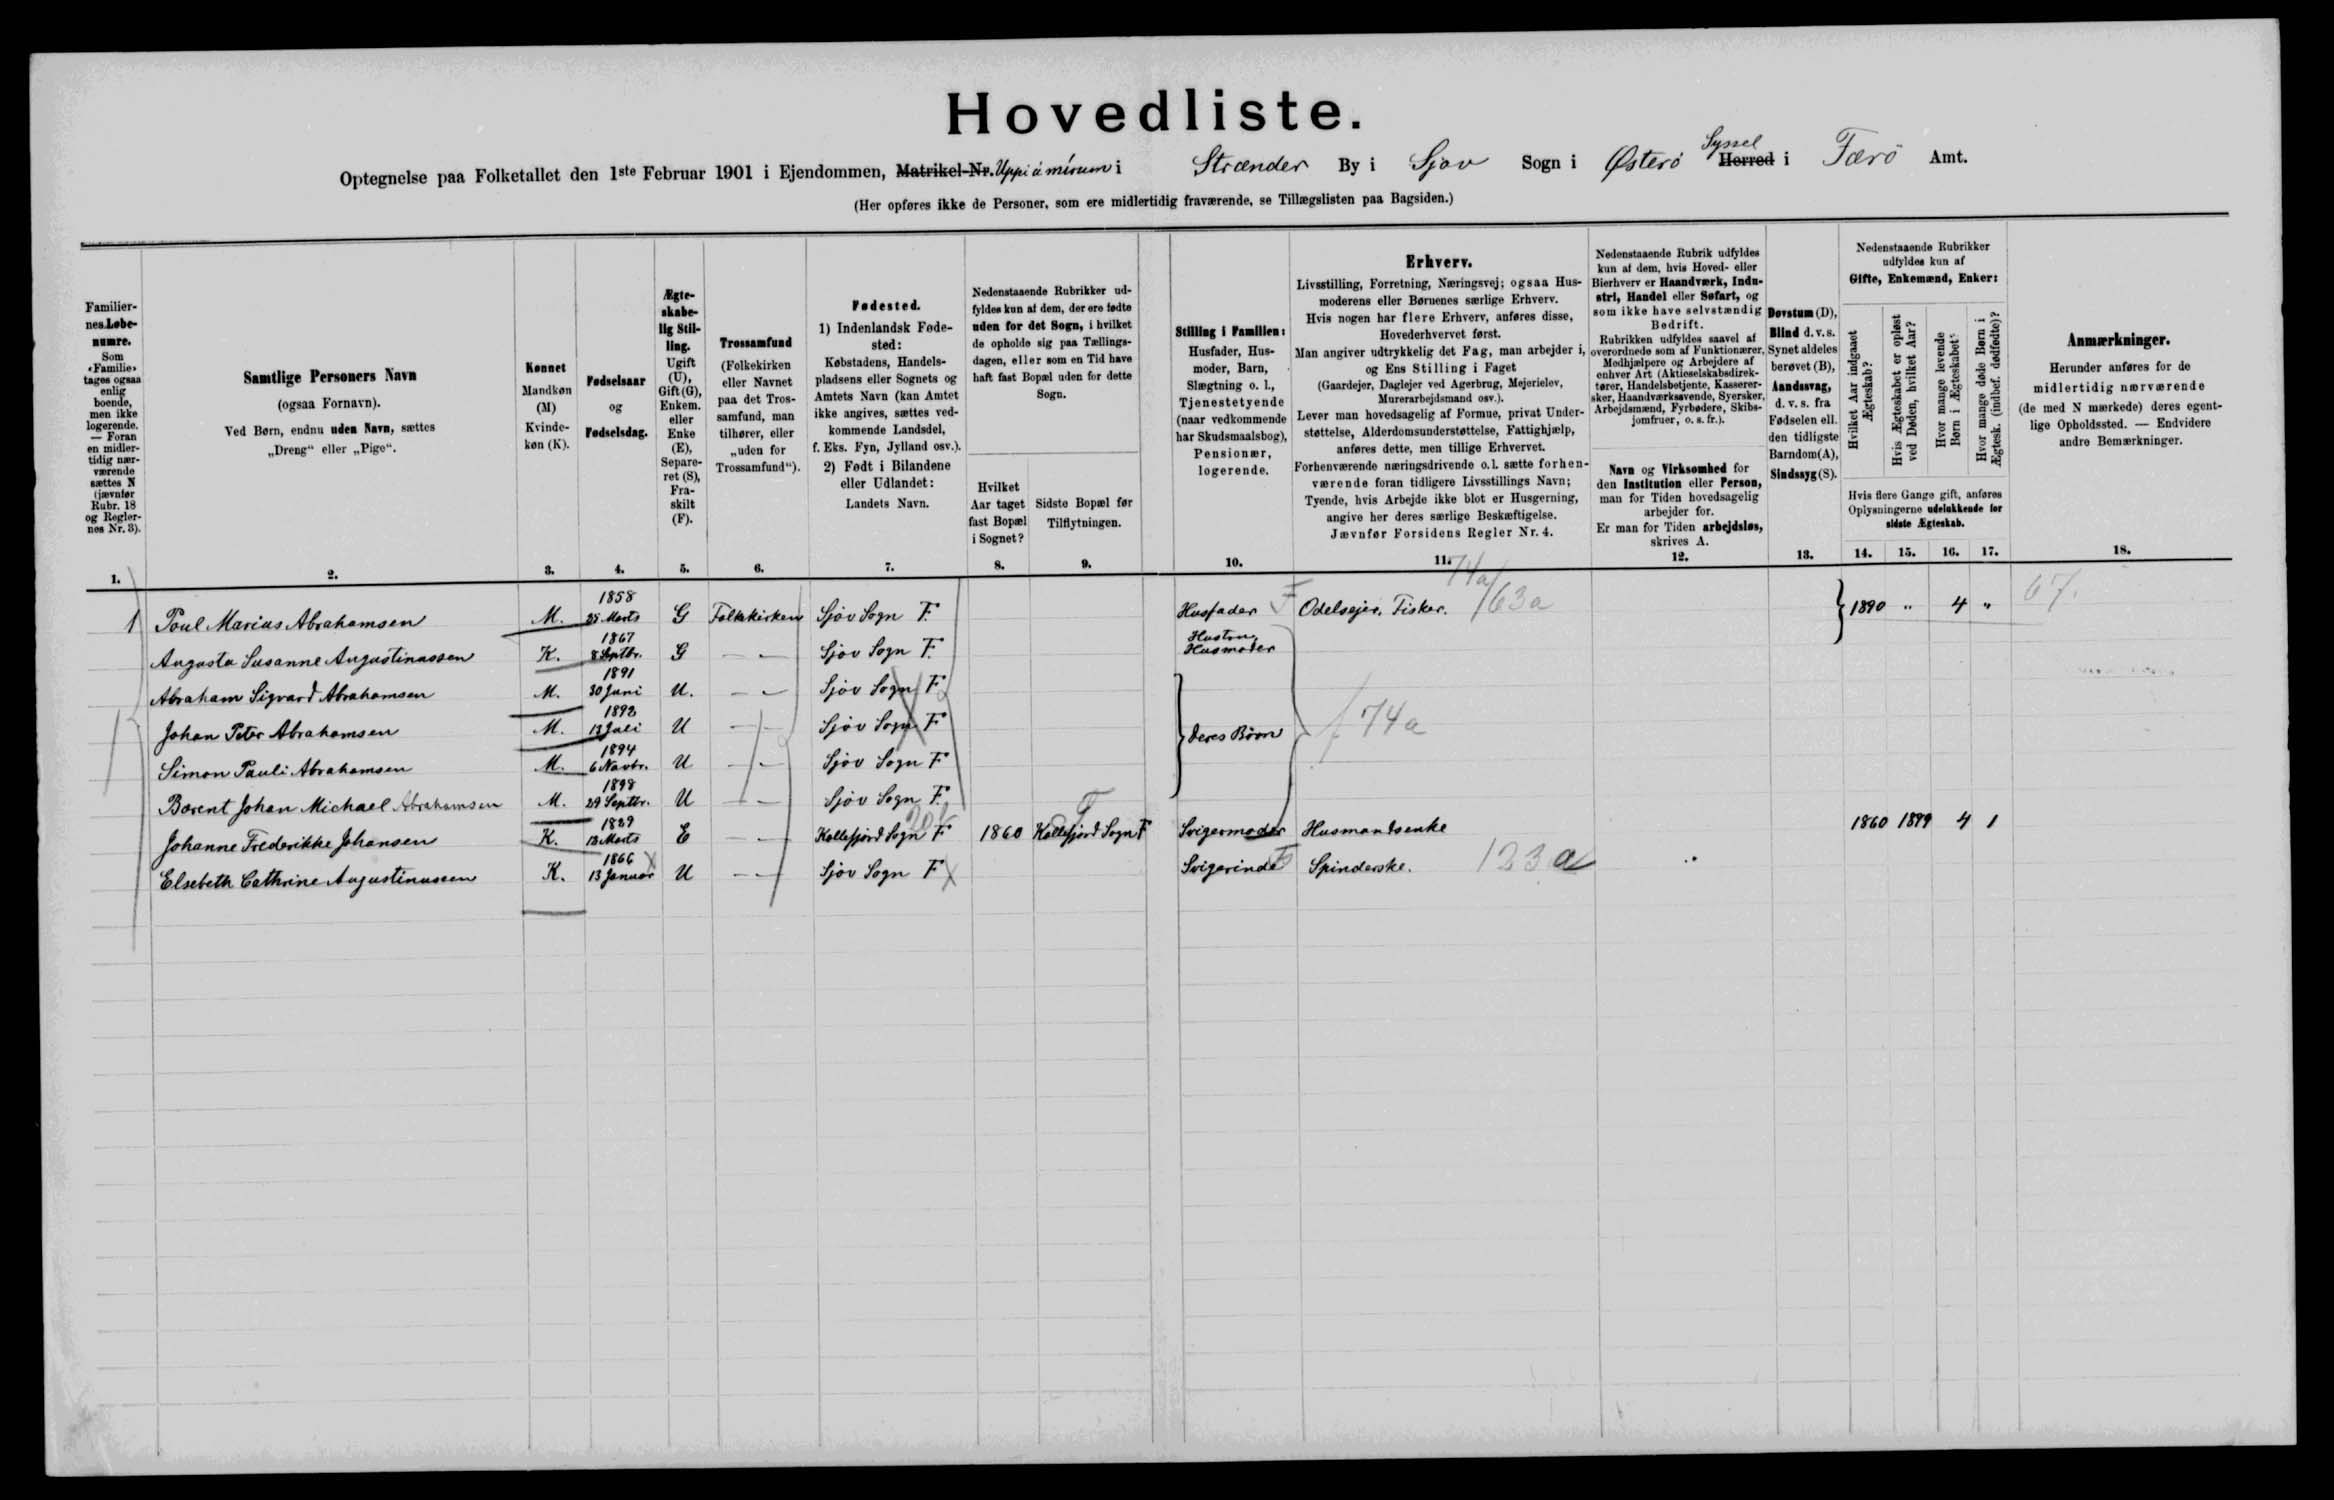 Hovedliste.
Optegnelse paa Folketallet den 1ste Februar 1901 i Ejendommen, Matrikel-Nr. Uppi á mírum i Strænder By i Sjov Sogn i Østerö Herred Syssel i Færö Amt.
(Her opføres ikke de Personer, som ere midlertidig fraværende, se Tillægslisten paa Bagsiden.)
Familier-
nes Løbe-
numre.
Som
«Familie»
tages ogsaa
enlig
boende,
men ikke
logerende.
— Foran
en midler-
tidig nær-
værende
sættes N
(jævnfør
Rubr. 18
og Regler-
nes Nr. 3).
1.
Samtlige Personers Navn
(ogsaa Fornavn).
Ved Børn, endnu uden Navn, sættes
„Dreng“ eller „Pige“.
2.
Kønnet
Mandkøn
(M)
Kvinde-
køn (K).
3.
Fødselsaar
og
Fødselsdag.
4.
Ægte-
skabe-
lig Stil-
ling.
Ugift
(U),
Gift (G),
Enkem.
eller
Enke
(E),
Separe-
ret (S),
Fra-
skilt
(F).
5.
Trossamfund
(Folkekirken
eller Navnet
paa det Tros-
samfund, man
tilhører, eller
„uden for
Trossamfund“).
6.
Fødested.
1) Indenlandsk Føde-
sted:
Købstadens, Handels-
pladsens eller Sognets og
Amtets Navn (kan Amtet
ikke angives, sættes ved-
kommende Landsdel,
f. Eks. Fyn, Jylland osv.).
2) Født i Bilandene
eller Udlandet:
Landets Navn.
7.
Nedenstaaende Rubrikker ud-
fyldes kun af dem, der ere fødte
uden for det Sogn, i hvilket
de opholde sig paa Tællings-
dagen, eller som en Tid have
haft fast Bopæl uden for dette
Sogn.
Hvilket
Aar taget
fast Bopæl
i Sognet?
8.
Sidste Bopæl før
Tilflytningen.
9.
Stilling i Familien:
Husfader, Hus-
moder, Barn,
Slægtning o. l.,
Tjenestetyende
(naar vedkommende
har Skudsmaalsbog),
Pensionær,
logerende.
10.
Erhverv.
Livsstilling, Forretning, Næringsvej; ogsaa Hus-
moderens eller Børnenes særlige Erhverv.
Hvis nogen har flere Erhverv, anføres disse,
Hovederhvervet først.
Man angiver udtrykkelig det Fag, man arbejder i,
og Ens Stilling i Faget
(Gaardejer, Daglejer ved Agerbrug, Mejerielev,
Murerarbejdsmand osv.).
Lever man hovedsagelig af Formue, privat Under-
støttelse, Alderdomsunderstøttelse, Fattighjælp,
anføres dette, men tillige Erhvervet.
Forhenværende næringsdrivende o. l. sætte forhen-
værende foran tidligere Livsstillings Navn;
Tyende, hvis Arbejde ikke blot er Husgerning,
angive her deres særlige Beskæftigelse.
Jævnfør Forsidens Regler Nr. 4.
11.
Nedenstaaende Rubrik udfyldes
kun af dem, hvis Hoved- eller
Bierhverv er Haandværk, Indu-
stri, Handel eller Søfart, og
som ikke have selvstændig
Bedrift.
Rubrikken udfyldes saavel af
overordnede som af Funktionærer,
Medhjælpere og Arbejdere af
enhver Art (Aktieselskabsdirek-
tører, Handelsbetjente, Kasserer-
sker, Haandværkssvende, Syersker,
Arbejdsmænd, Fyrbødere, Skibs-
jomfruer, o. s. fr.).
Navn og Virksomhed for
den Institution eller Person,
man for Tiden hovedsagelig
arbejder for.
Er man for Tiden arbejdsløs,
skrives A.
12.
Døvstum (D),
Blind d. v. s.
Synet aldeles
berøvet (B),
Aandssvag,
d. v. s. fra
Fødselen ell.
den tidligste
Barndom (A),
Sindssyg (S).
13.
Nedenstaaende Rubrikker
udfyldes kun af
Gifte, Enkemænd, Enker:
Hvilket Aar indgaaet
Ægteskab?
Hvis Ægteskabet er opløst
ved Døden, hvilket Aar?
Hvor mange levende
Børn i Ægteskabet?
Hvor mange døde Børn i
Ægtesk. (indbef. dødfødte)?
Hvis flere Gange gift, anføres
Oplysningerne udelukkende for
sidste Ægteskab.
14. 15. 16. 17.
Anmærkninger.
Herunder anføres for de
midlertidig nærværende
(de med N mærkede) deres egent-
lige Opholdssted. — Endvidere
andre Bemærkninger.
18.
1 Poul Marius Abrahamsen M. 1858 25 Marts G Folkekirken Sjov Sogn F. Husfader F Odelsejer, Fisker. 74a/63a 1890 " 4 " 67.
Augusta Susanne Augustinussen K. 1867 8 Septbr. G — — Sjov Sogn F. Hustru, Husmoder
Abraham Sigvard Abrahamsen M. 1891 30 Juni U. — — Sjov Sogn F
Johan Peter Abrahamsen M. 1892 13 Juli U — — Sjov Sogn F deres Börn 74a
Simon Pauli Abrahamsen M. 1894 6 Novbr. U — — Sjov Sogn F
Berent Johan Michael Abrahamsen M. 1898 29 Septbr. U — — Sjov Sogn F.
Johanne Frederikke Johansen K. 1829 13 Marts E — — Kollefjord Sogn F 1860 Kollefjord Sogn F Svigermoder Husmandsenke 1860 1899 4 1
Elsebeth Cathrine Augustinussen K. 1866 13 Januar U — — Sjov Sogn F Svigerinde F Spinderske. 123a